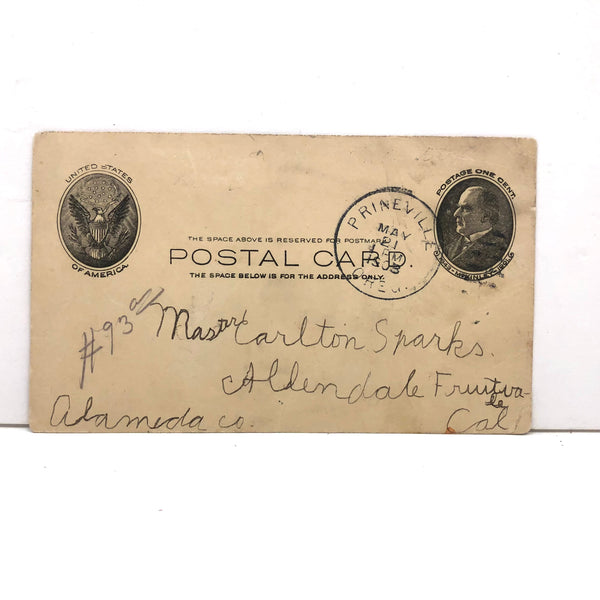 UNITED STATES
OF AMERICA.
POSTAGE ONE CENT.
1843·McKINLEY·1901
PRINEVILLE
MAY
21
1903
OREG.
THE SPACE ABOVE IS RESERVED FOR POSTMARK
POSTAL CARD
THE SPACE BELOW IS FOR THE ADDRESS ONLY.
#93
Master Carlton Sparks.
Aldendale Fruitva-
le
Alameda co. Cal